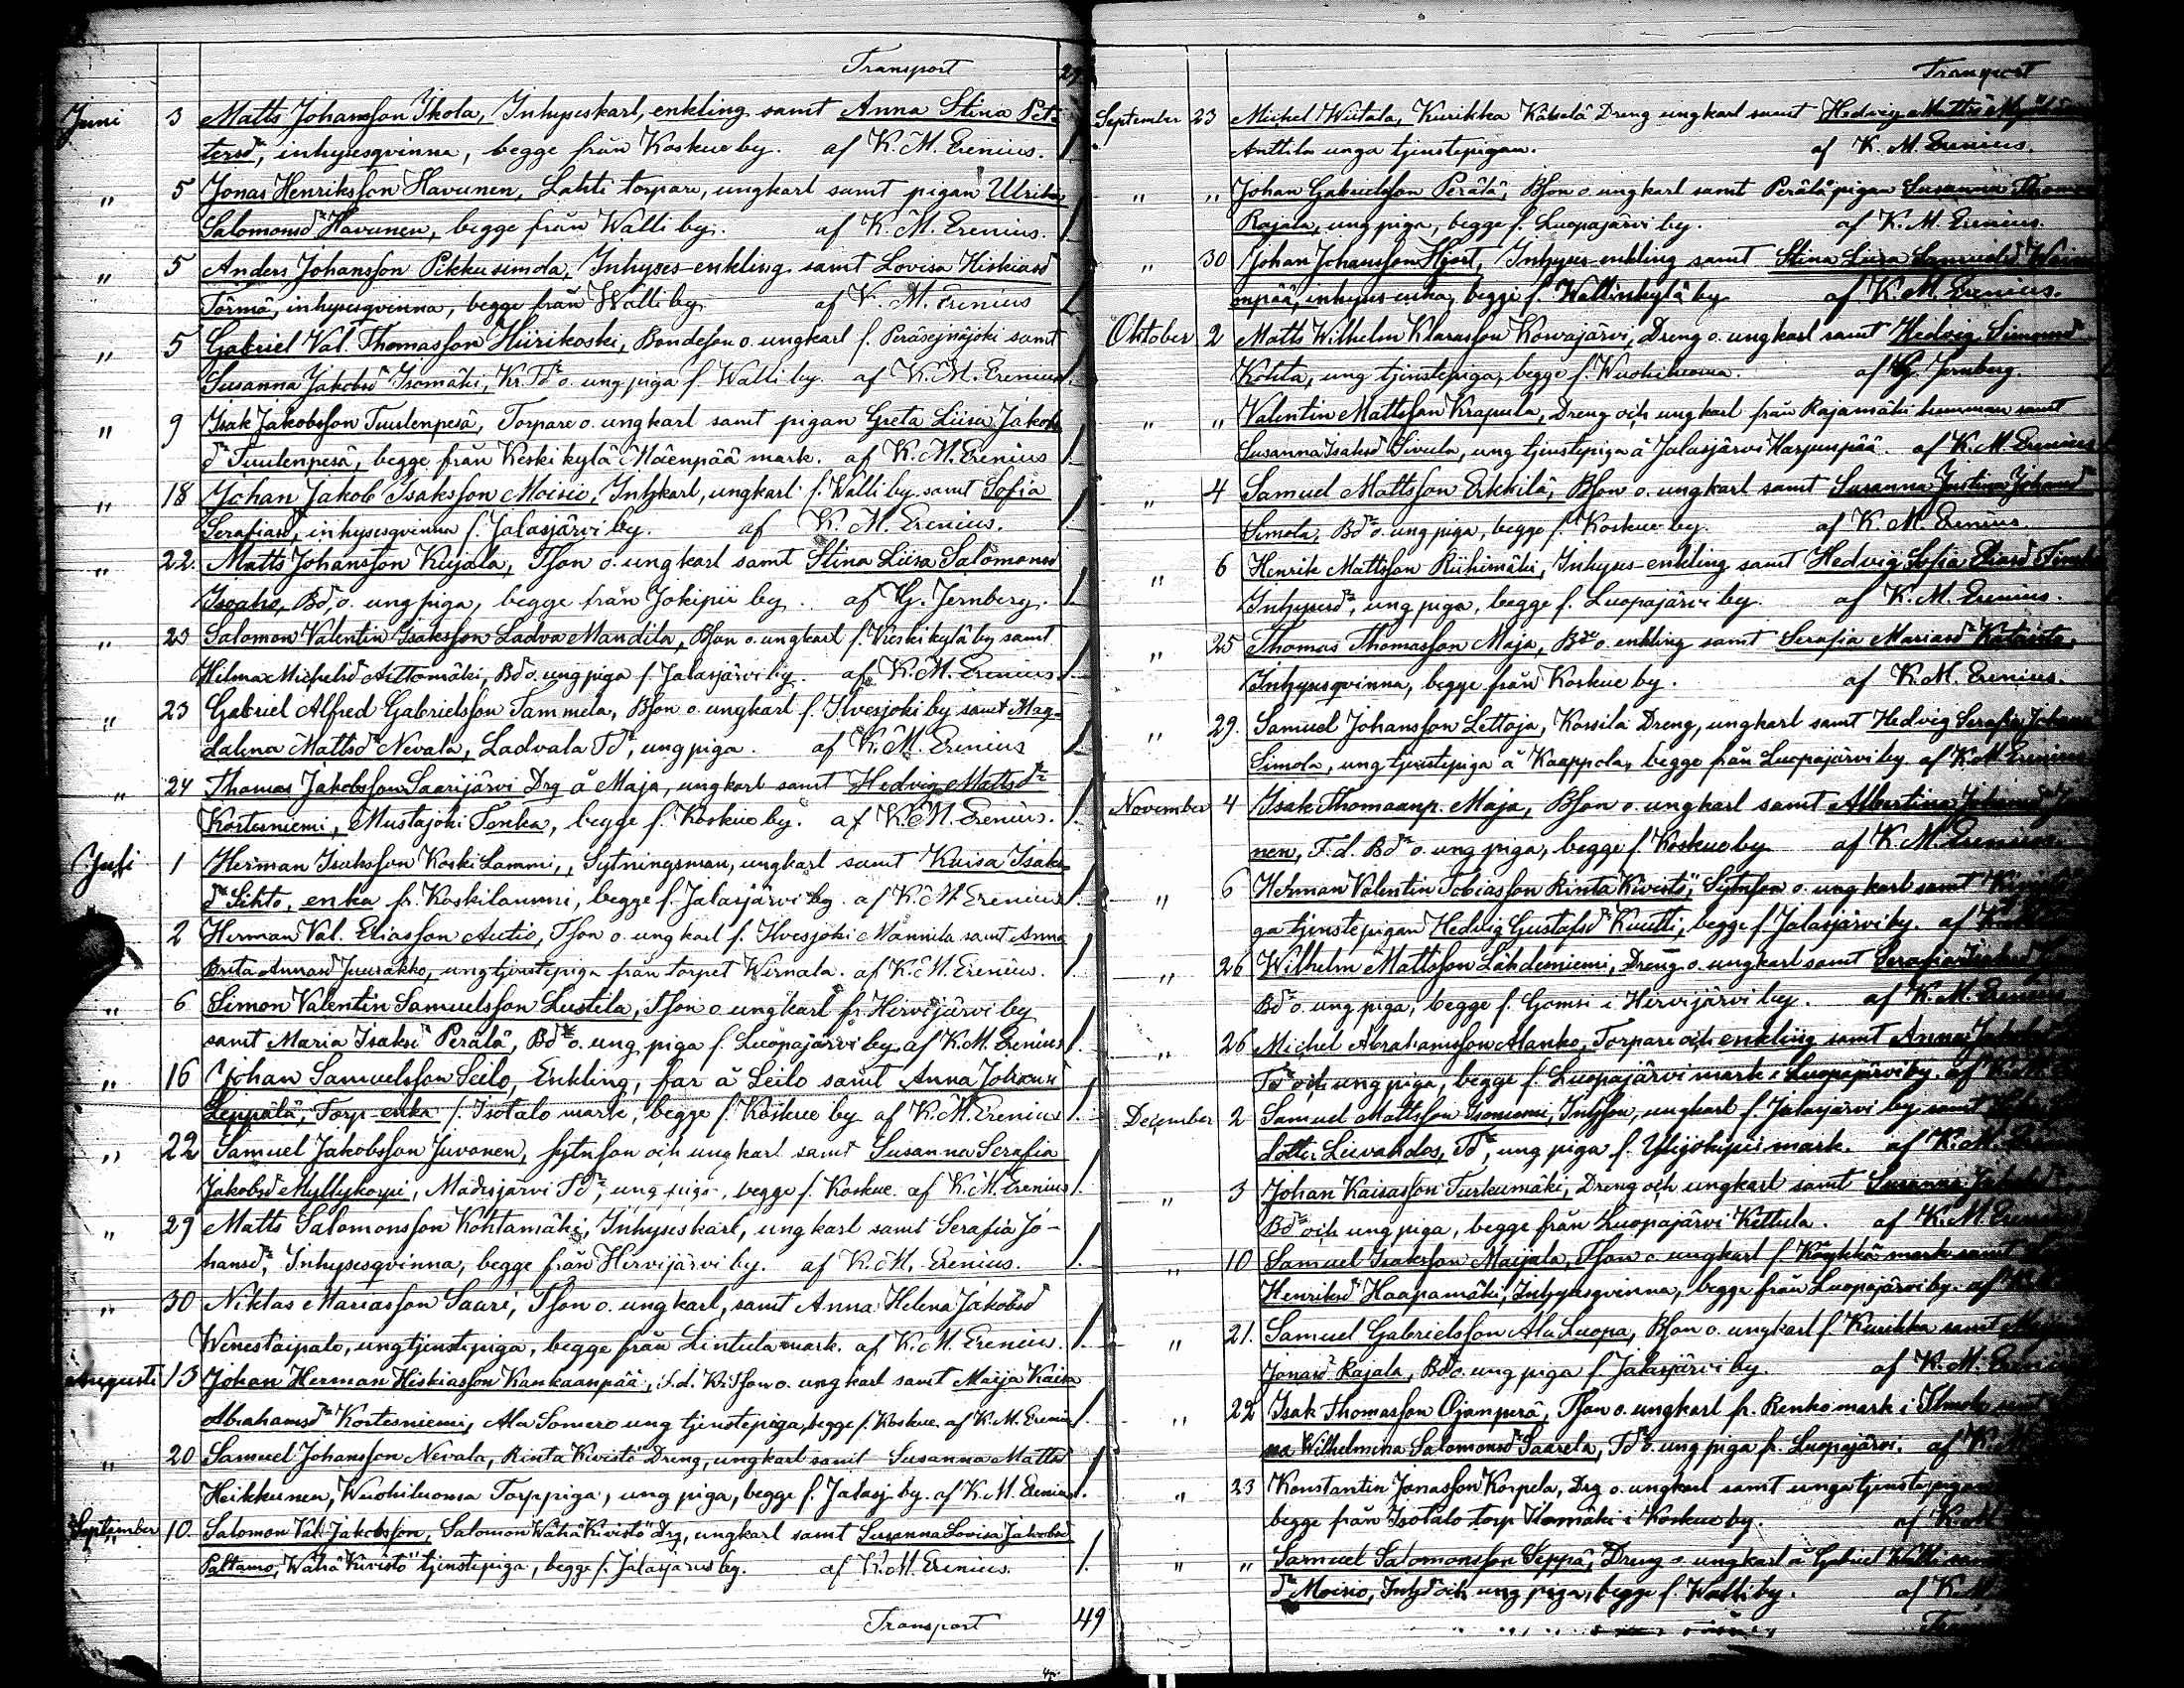 Transport 27
Juni 3 Matts Johansson Ikola, Inhyseskarl, enkling samt Anna Stina Pet-
tersdr, inhysesqvinna, begge från Koskue by. af K. M. Erenius. 1.
" 5 Jonas Henriksson Havunen, Lahti torpare, ungkarl samt pigan Ulrika
Salomonsdr Havunen, begge från Walli by. af K. M. Erenius. 1.
" 5 Anders Johansson Pikkusimola, Inhyses-enkling samt Lovisa Hiskiasd
Törmä, inhysesqvinna, begge från Walli by af K. M. Erenius 1.
" 5 Gabriel Val. Thomasson Hiirikoski, Bondeson o. ungkarl f. Peräsejnäjoki samt
Susanna Jakobsd Isomäki, Kr. Tdr o. ung piga f. Walli by. af K. M. Erenius 1.
" 9 Isak Jakobsson Tuulenpesä, Torpare o. ungkarl samt pigan Greta Liisa Jakobs
dr Tuulenpesä, begge från Keskikylä Mäenpää mark. af K. M. Erenius 1.
" 18 Johan Jakob Isaksson Moisio, Inhkarl, ungkarl f. Walli by samt Sofia
Serafiasd, inhysesqvinna f. Jalasjärvi by. af K. M. Erenius. 1.
" 22. Matts Johansson Kujala, Tson o. ungkarl samt Stina Liisa Salomonsd
Isoaho, Bd, o. ung piga, begge från Jokipii by. af G. Jernberg. 1.
" 23 Salomon Valentin Isaksson Ladva Mandila, Bson o. ungkarl f. Keskikylä by samt
Hilma Michelsd Aittomäki, Bd o. ung piga f. Jalasjärvi by. af K. M. Erenius. 1.
" 23 Gabriel Alfred Gabrielsson Tammela, Bson o. ungkarl f. Ilvesjoki by samt Mag-
dalena Mattsdr Nevala, Ladvala Tdr, ung piga. af K. M. Erenius 1.
" 24 Thomas Jakobsson Saarijärvi Drg å Maja, ungkarl samt Hedvig Mattsdr
Kortesniemi, Mustajoki Tenka, begge f. Koskue by. af K. M. Erenius. 1.
Juli 1 Herman Isaksson Koski Lammi, Sytningsman, ungkarl samt Kaisa Isaks
dr Sihto, enka fr. Koskilammi, begge f. Jalasjärvi by. af K. M. Erenius 1.
2 Herman Val. Eliasson Autio, Tson o. ungkarl f. Ilvesjoki Mannila samt Anna
Brita Annasd Juurakko, ung tjenstepiga från torpet Wirnala. af K. M. Erenius. 1.
" 6 Simon Valentin Samuelsson Lustila, Tson o. ungkarl fr. Hirvijärvi by
samt Maria Isaksd Perälä, Bdr o. ung piga f. Luopajärvi by af K. M. Erenius 1.
" 16 Johan Samuelsson Seilo, Enkling, far å Seilo samt Anna Johansd
Leppälä, Torp enka f. Isotalo mark, begge f. Koskue by af K. M. Erenius 1.
" 22 Samuel Jakobsson Juvonen, Sytnson och ungkarl samt Susanna Serafia
Jakobsd Myllykorpi, Madesjärvi Tdr, ung piga, begge f. Koskue. af K. M. Erenius 1.
" 29 Matts Salomonsson Kohtamäki, Inhyseskarl, ungkarl samt Serafia Jo-
hansdr, Inhysesqvinna, begge från Hirvijärvi by. af K. M. Erenius. 1.
" 30 Niklas Mariasson Saari, Tson o. ungkarl, samt Anna Helena Jakobsd
Wenestaipale, ung tjenstepiga, begge från Lintula mark. af K. M. Erenius. 1.
Augusti 13 Johan Herman Hiskiasson Kankaanpää, f.d. Kr. Tson o. ungkarl samt Maija Kaisa
Abrahamsdr Kortesniemi, Ala Somero ung tjenstepiga, begge f. Koskue. af K. M. Erenius 1.
" 20 Samuel Johansson Nevala, Rinta Kivistö Dreng, ungkarl samt Susanna Mattsd
Heikkunen, Wuohiluoma Torppiga, ung piga, begge f. Jalasj. by. af K. M. Erenius 1.
September 10. Salomon Val. Jakobsson, Salomon Wähä Kivistö Drg, ungkarl samt Susanna Lovisa Jakobsd
Paltamo, Wähä Kivistö tjenstepiga, begge f. Jalasjärvi by. af K. M. Erenius. 1.
Transport 49
Transport
September 23 Michel Wiitala, Kurikka Käbelä Dreng ungkarl samt Hedvig Mattsd
Anttila unga tjenstepigan. af K. M. Erenius.
" " Johan Gabrielsson Perälä, Bson o. ungkarl samt Perälä pigan Susanna
Rajala, ung piga, begge f. Luopajärvi by. af K. M. Erenius.
" 30 Johan Johansson Hjort, Inhyses-enkling samt Stina Liisa Samuelsd
mpää, inhyses-enka, begge f. Wallinkylä by af K. M. Erenius.
Oktober 2 Matts Wilhelm Klarasson Kowajärvi, Dreng o. ungkarl samt Hedvig Simonsd
Kohta, ung tjenstepiga, begge f. Wuohiluoma. af G. Jernberg.
" " Valentin Mattsson Krapula, Dreng och ungkarl från Rajamäki hemman samt
Susanna Isaksd Sivula, ung tjenstepiga å Jalasjärvi Harjunpää. af K. M. Erenius
" 4 Samuel Mattsson Erkkilä, Bson o. ungkarl samt Susanna Justina Johansdr
Simola, Bdr o. ung piga, begge f. Koskue by. af K. M. Erenius.
" 6 Henrik Mattsson Riihimäki, Inhyses-enkling samt Hedvig Sofia Eliasd
Inhysesdr, ung piga, begge f. Luopajärvi by. af K. M. Erenius.
" 25 Thomas Thomasson Maja, Bde o. enkling samt Serafia Mariasdr Kataisto,
Inhysesqvinna, begge från Koskue by. af K. M. Erenius.
" 29. Samuel Johansson Lettoja, Korsila Dreng, ungkarl samt Hedvig Serafia Johans
Simola, ung tjenstepiga å Kaappola, begge från Luopajärvi by. af K. M. Erenius
November 4 Isak Thomasnp. Maja, Bson o. ungkarl samt Albertina
nen, F.d. Bdr o. ung piga, begge f. Koskue by af K. M. Erenius.
" 6 Herman Valentin Tobiasson Rinta Kivistö, Sytnson o. ungkarl samt
ga tjenstepigan Hedvig Gustafsdr Kuutti, begge f. Jalasjärvi by. af K.
" 26 Wilhelm Mattsson Lähdeniemi, Dreng o. ungkarl samt Serafia
Bdr o. ung piga, begge f. Gomsi i Hirvijärvi by. af K. M. Erenius
" 26 Michel Abrahamsson Alanko, Torpare och enkling samt Anna
Tdr och ung piga, begge f. Luopajärvi mark i Luopajärvi by. af K. M.
December 2 Samuel Mattsson Isoniemi, Inhson, ungkarl f. Jalasjärvi by samt
dotter Liivahdos, Tdr, ung piga f. Ylijokipii mark. af K. M.
" 3 Johan Kaisasson Turkumäki, Dreng och ungkarl samt Susanna
Bdr och ung piga, begge från Luopajärvi Kettula. af K. M. Erenius
" 10 Samuel Isaksson Maijala, Tson o. ungkarl f. Köykkä mark samt
Henriksd Haapamäki, Inhysesqvinna, begge från Luopajärvi by. af
" 21. Samuel Gabrielsson Ala Luopa, Bson o. ungkarl f. Kurikka samt
Jonasd Rajala, Bdr o. ung piga f. Jalasjärvi by. af K. M. Erenius
" 22 Isak Thomasson Ojanperä, Tson o. ungkarl fr. Renko mark i Ilmola samt
na Wilhelmina Salomonsdr Saarela, Tdr o. ung piga fr. Luopajärvi. af K.
" 23 Konstantin Jonasson Korpela, Drg o. ungkarl samt unga tjenstepigan
begge från Isotalo torp Ilomäki i Koskue by. af K. M.
" " Samuel Salomonsson Seppä, Dreng o ungkarl å Gabriel Walli
dr Moisio, Inhd och ung piga, begge f. Walli by. af K. M.